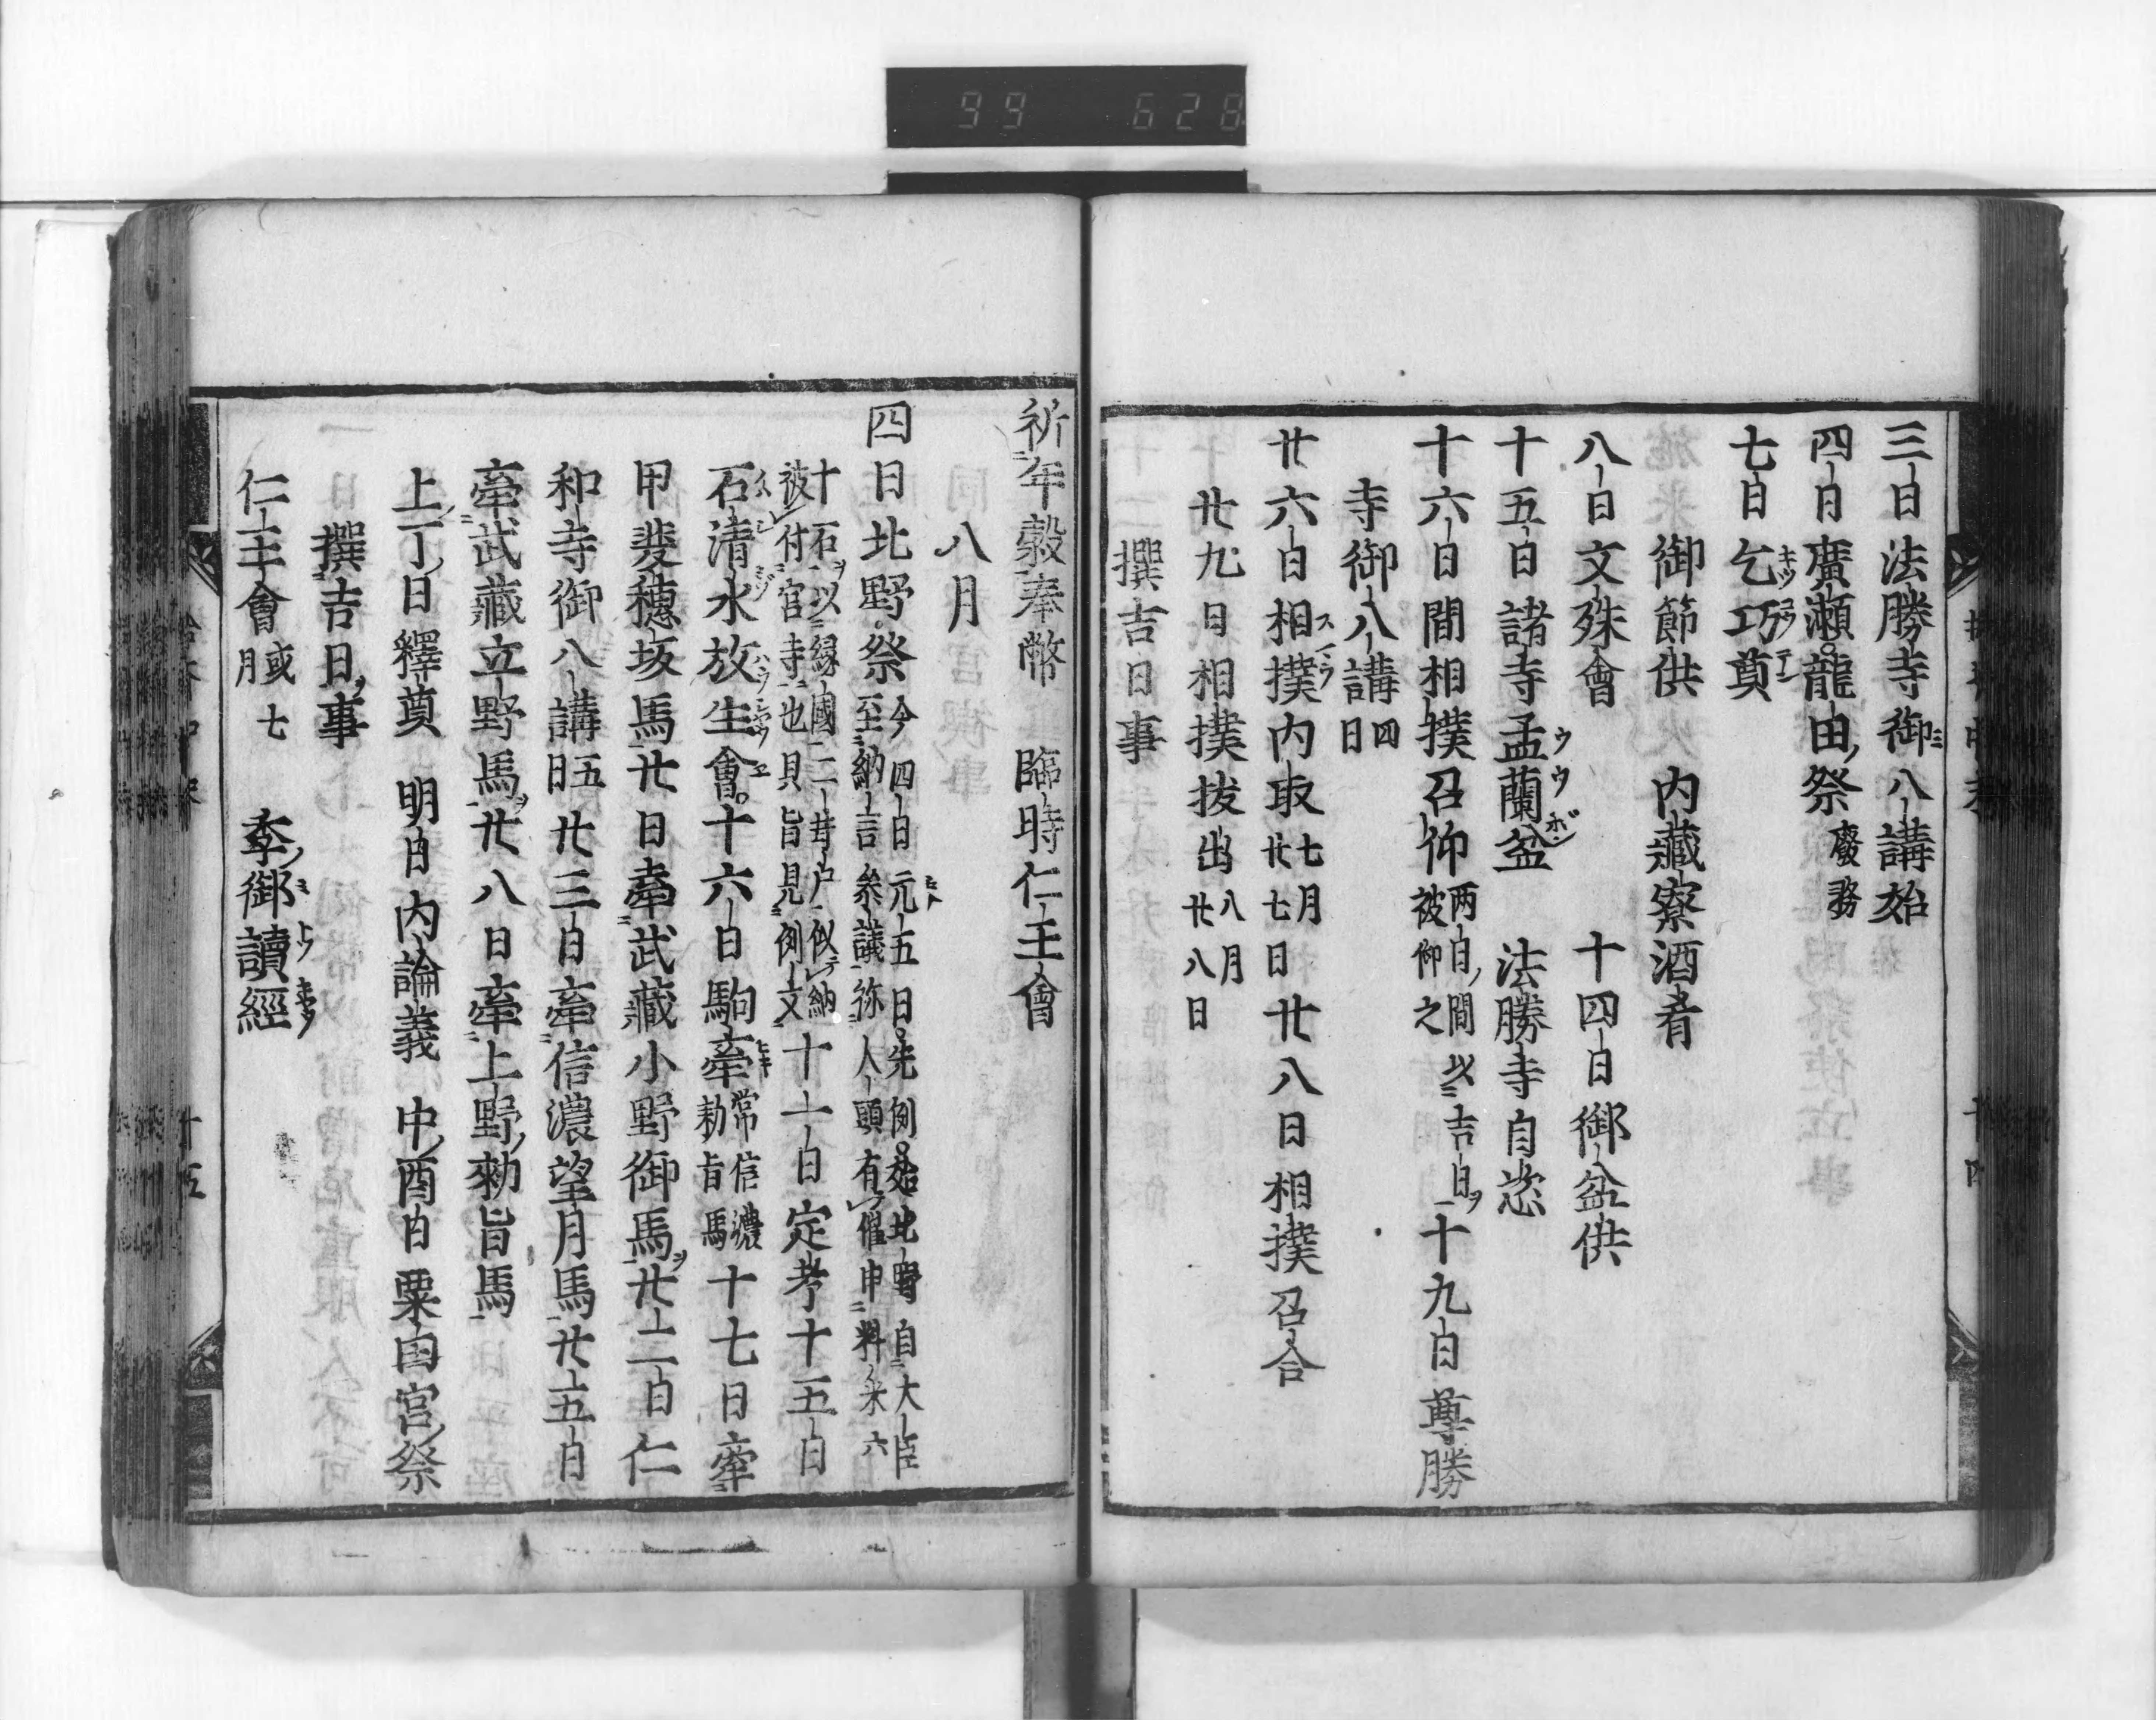 99 628
三日法勝寺御八講始
四日廣瀬龍田祭廢務
七日乞巧奠
御節供 内藏寮酒肴
八日文殊會 十四日御盆供
十五日諸寺盂蘭盆 法勝寺自恣
十六日間相撲召仰両日間以吉日被仰之十九日尊勝
寺御八講四日
廿六日相撲内取七月廿七日廿八日相撲召合
廿九日相撲拔出八月廿八日
撰吉日事
祈年穀奉幣 臨時仁王會
八月
四日北野祭今四日元五日先例始北野自大臣至納言參議弥人頭有催申料米六
十石以縁國二封戸似納被付官寺也具旨見例文十一日定考十五日
石清水放生會十六日駒牽常信濃勅旨馬十七日牽
甲斐穗坂馬廿日牽武藏小野御馬廿二日仁
和寺御八講五日廿三日牽信濃望月馬廿五日
牽武藏立野馬廿八日牽上野勅旨馬
上丁日釋奠 明日内論義 中酉日粟田宮祭
撰吉日事
仁王會或七月 季御讀經